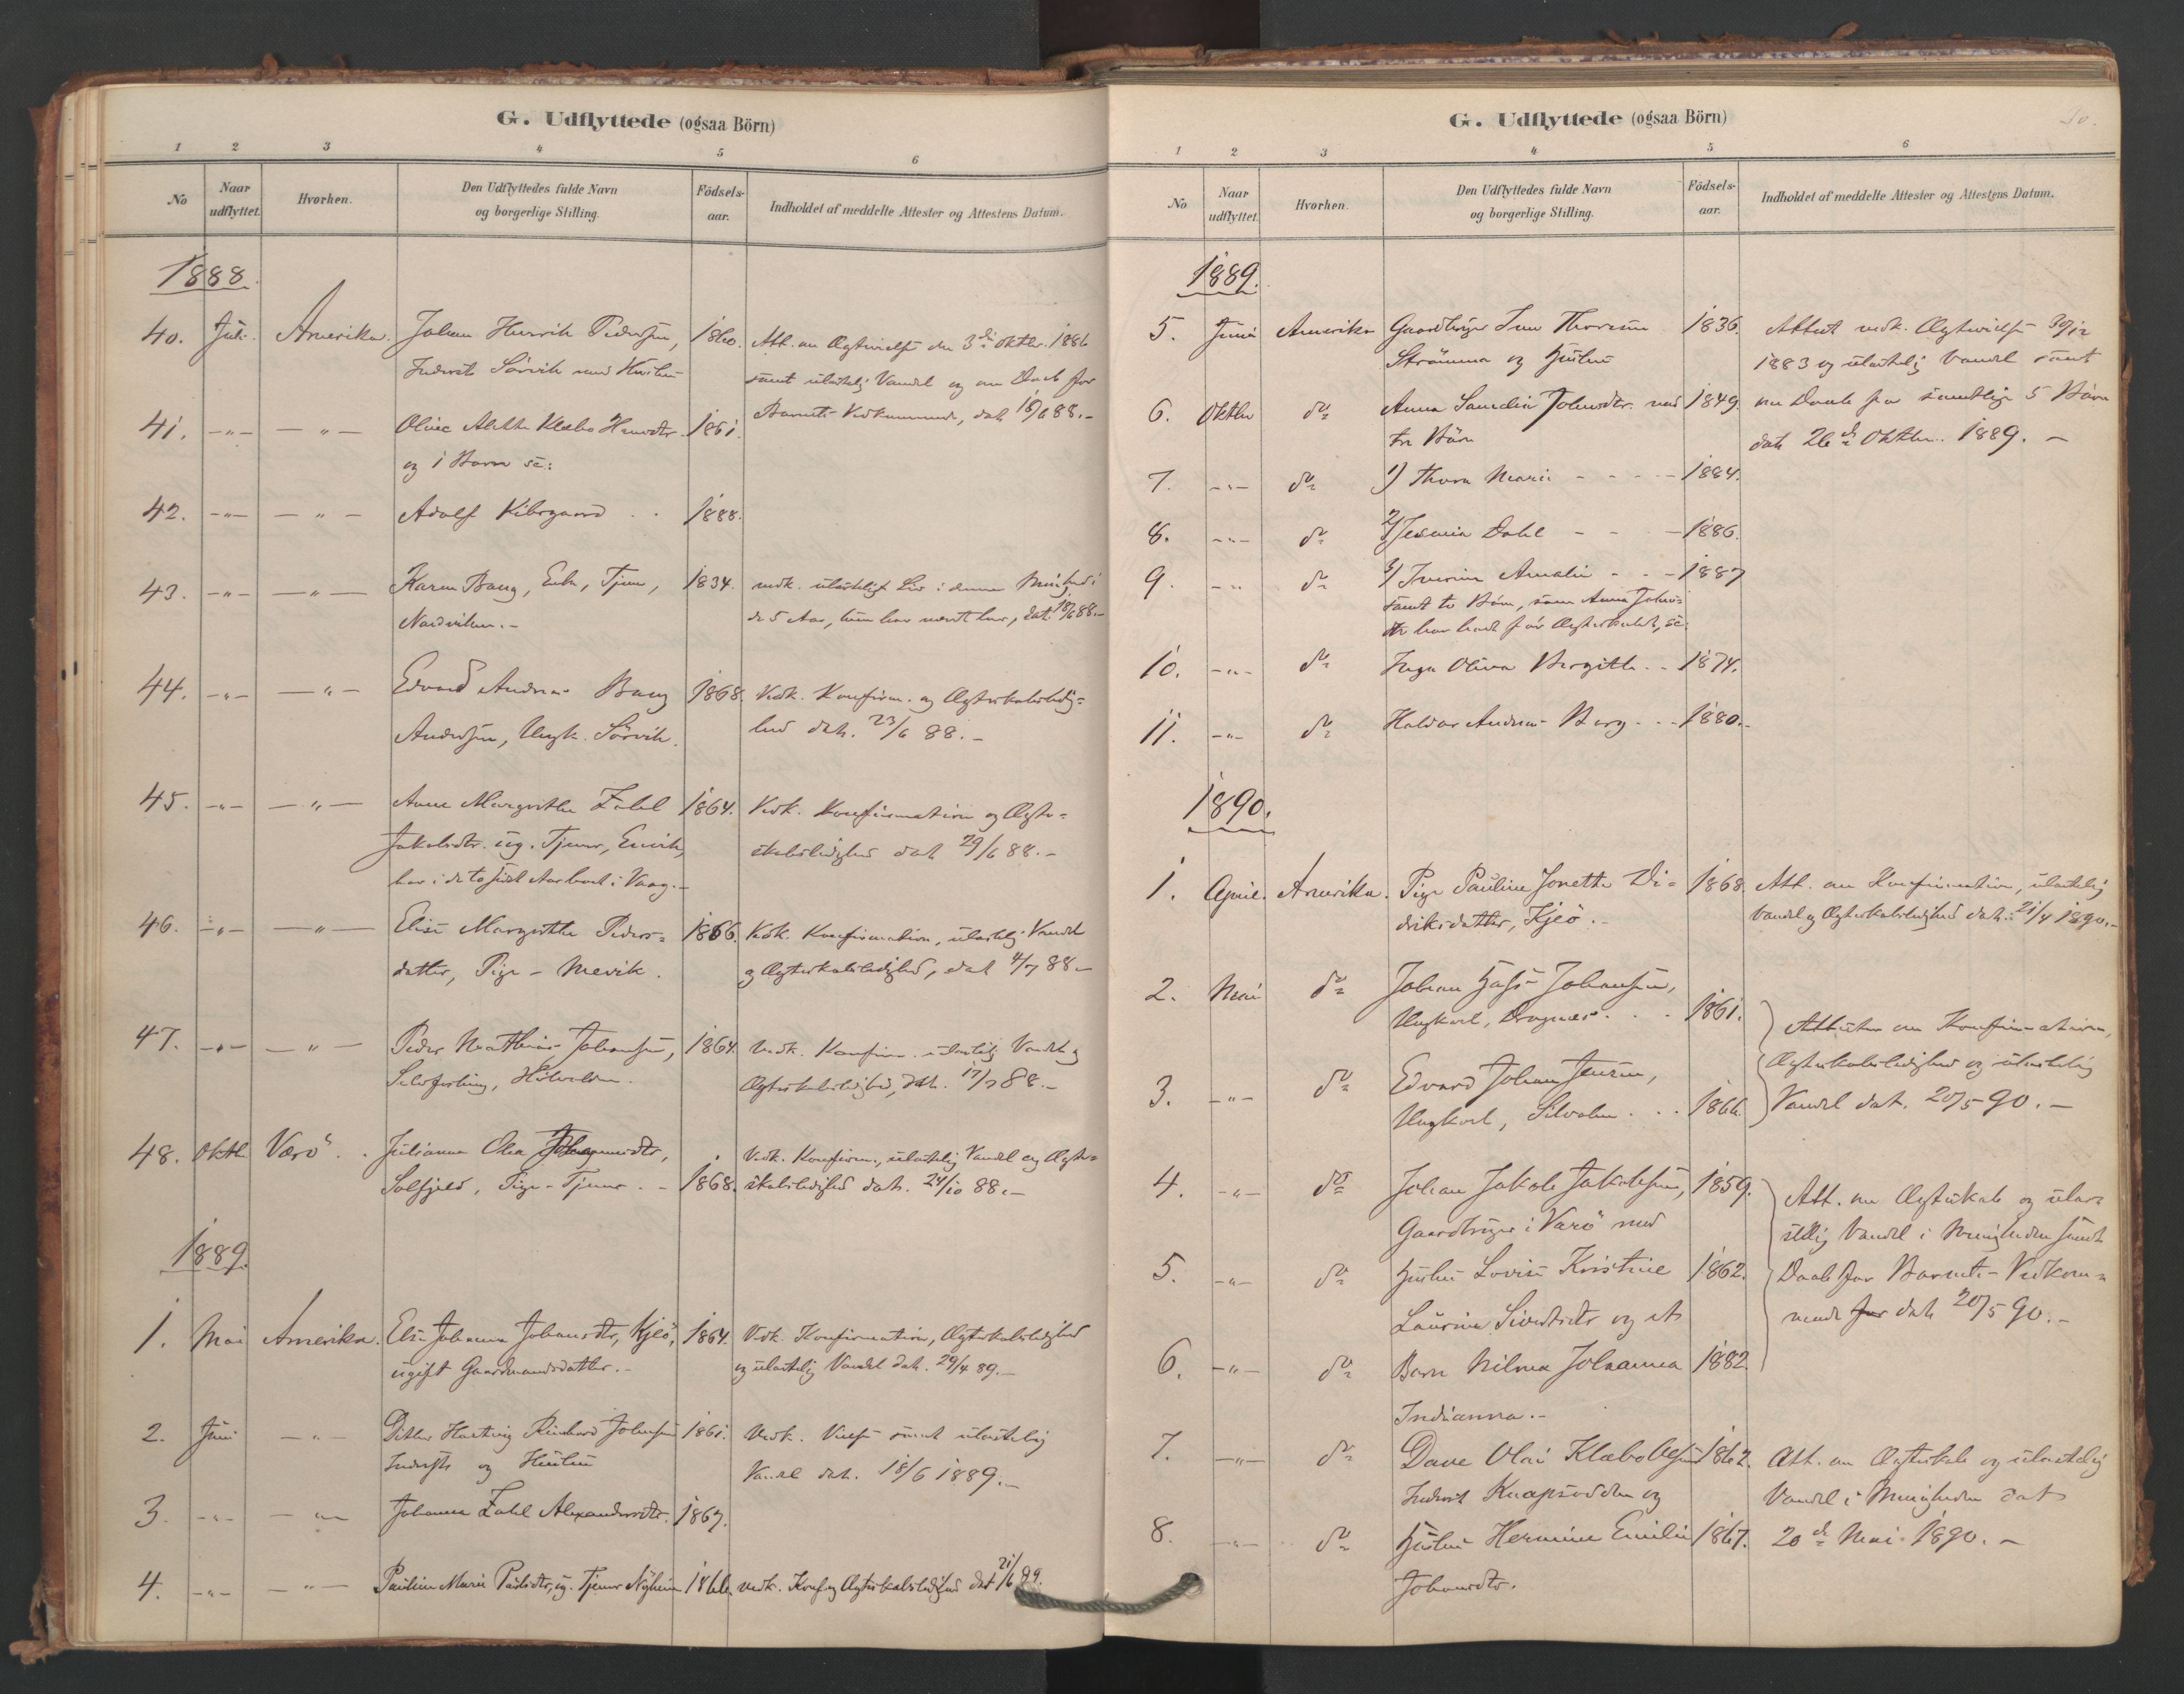 G. Udflyttede (ogsaa Börn)
1 2 3 4 5 6
No Naar udflyttet. Hvorhen. Den Udflyttedes fulde Navn og borgerlige Stilling. Födsels-aar. Indholdet af meddelte Attester og Attestens Datum.
1888.
40. Juli Amerika. Johan Henrik Pedersen, 1860. Att. om Ægtevielse den 3die Oktbr. 1886
Inderst Sörvik med Hustru samt ulastelig Vandel og om Daab for
41. -"- -"- Oline Aletta Klæbo Hansdtr. 1861. Barnets Vedkommende, dat. 18/6 88.-
og 1 Barn se:
42. -"- -"- Adolf Kibsgaard . . 1888.
43. -"- -"- Karen Bang, Enke, Tjen., 1834. vedk. ulasteligt Liv i denne Menighed i
Nordviken.- de 5 Aar, hun har været her, dat. 18/6 88.-
44. -"- -"- Edvard Andreas Bang 1868. Vedk. Konfirm. og Ægteskabsledig=
Andersen, Ungk. Sörvik. hed dat. 23/6 88.-
45. -"- -"- Anne Margrethe Zahl 1864. Vedk. Konfirmation og Ægte=
Jakobsdtr. ug. Tjener, Envik, skabsledighed dat. 29/6 88.-
har i de to sidste Aar boet i Vaag.-
46. -"- -"- Elise Margrethe Peders= 1866. Vedk. Konfirmation, ulastelig Vandel
datter, Pige - Mevik. og Ægteskabsledighed, dat 4/7 88-
47. -"- -"- Peder Mathias Johansen, 1864. Vedk. Konfirm. ulastelig Vandel og
Selvforsörg, Ægteskabsledighed, dat. 17/7 88.-
48. Oktb. Værö. Julianna Olea
Solfjeld, Pige - Tjener. - 1868. Vedk. Konfirm., ulastelig Vandel og Ægte=
skabsledighed dat. 24/10 88.-
1889.
1. Mai Amerika. Else Johanna Johansdtr, Kjeö, 1864. Vedk. Konfirmation, Ægteskabsledighed
ugift Gaardmandsdatter.- og ulastelig Vandel dat. 29/4 89.-
2. Juni -"- Ditlev Hartvig Rinhard Johnsen 1861. Vedk. Vielse samt ulastelig
Inderst og Hustru Vandel dat. 18/6 1889.-
3. -"- -"- Johanna Zahl Alexandersdtr. 1867.
4. -"- -"- Pauline Marie Paulsdtr, ug. Tjener Nyheim 1866. vedk. Konf. og Ægteskabsledighed dat 21/6 89.
G. Udflyttede (ogsaa Börn)
1 2 3 4 5 6
No Naar udflyttet. Hvorhen. Den Udflyttedes fulde Navn og borgerlige Stilling. Födsels-aar. Indholdet af meddelte Attester og Attestens Datum.
1889.
5. Juni Amerika Gaardbruger Thoresen 1836. Attest vedk. Ægtevielse 30/12
Strömmen og Hustru 1883 og ulastelig Vandel samt
6. Oktbr do Anna Johnsdtr. med 1849. om Daab for samtlige 5 Börn
tre Börn dat. 26de Oktbr. 1889. -
7. -"- do 1) Thora Marie - - - - 1884.
8. -"- do 2) Jesmia Dahl - - - 1886.
9. -"- do 3) Amalie - - - 1887
samt to Börn, som Anna Johns=
dtr har havt för Ægteskabet, se:
10. -"- do Inga Olina Bergitte. - 1874.
11. -"- do Haldor Andreas Berg. - - 1880.-
1890.
1. April. Amerika. Pige Pauline Jonette Di= 1868. Att. om Konfirmation, ulastelig
driksdatter, Kjeö.- Vandel og Ægteskabsledighed dat. 21/4 1890.-
2. Mai do Johan Hass Johansen,
Ungkarl, Dragnes. . . 1861. Attester om Konfirmation,
3. -"- do Edvard Johan Jensen, Ægteskabsledighed og ulastelig
Ungkarl, . . 1866. Vandel dat. 20/5 90.-
4. -"- do Johan Jakob Jakobsen, 1859. Att. om Ægteskab og ula=
Gaardbruger i Værö med stelig Vandel i Menigheden samt
5. -"- do Hustru Lovise Kristine 1862. Daab for Barnets Vedkom=
Laurine Sivertsdtr og et mende for dat. 20/5 90.-
6. -"- do Barn Nilma Johanna 1882.
Indianna.-
7. -"- do Dave Olai Klæbo 1862. Att. om Ægteskab og ulastelig
Inderst Knapsodden og Vandel i Menigheden dat
8. -"- do Hustru Hermine Emilie 1867. 20de Mai 1890.-
Johansdtr.